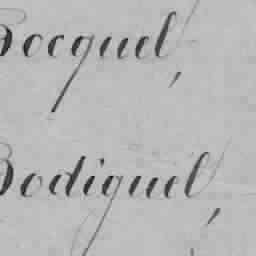 Bocquel,
Bodiguel,